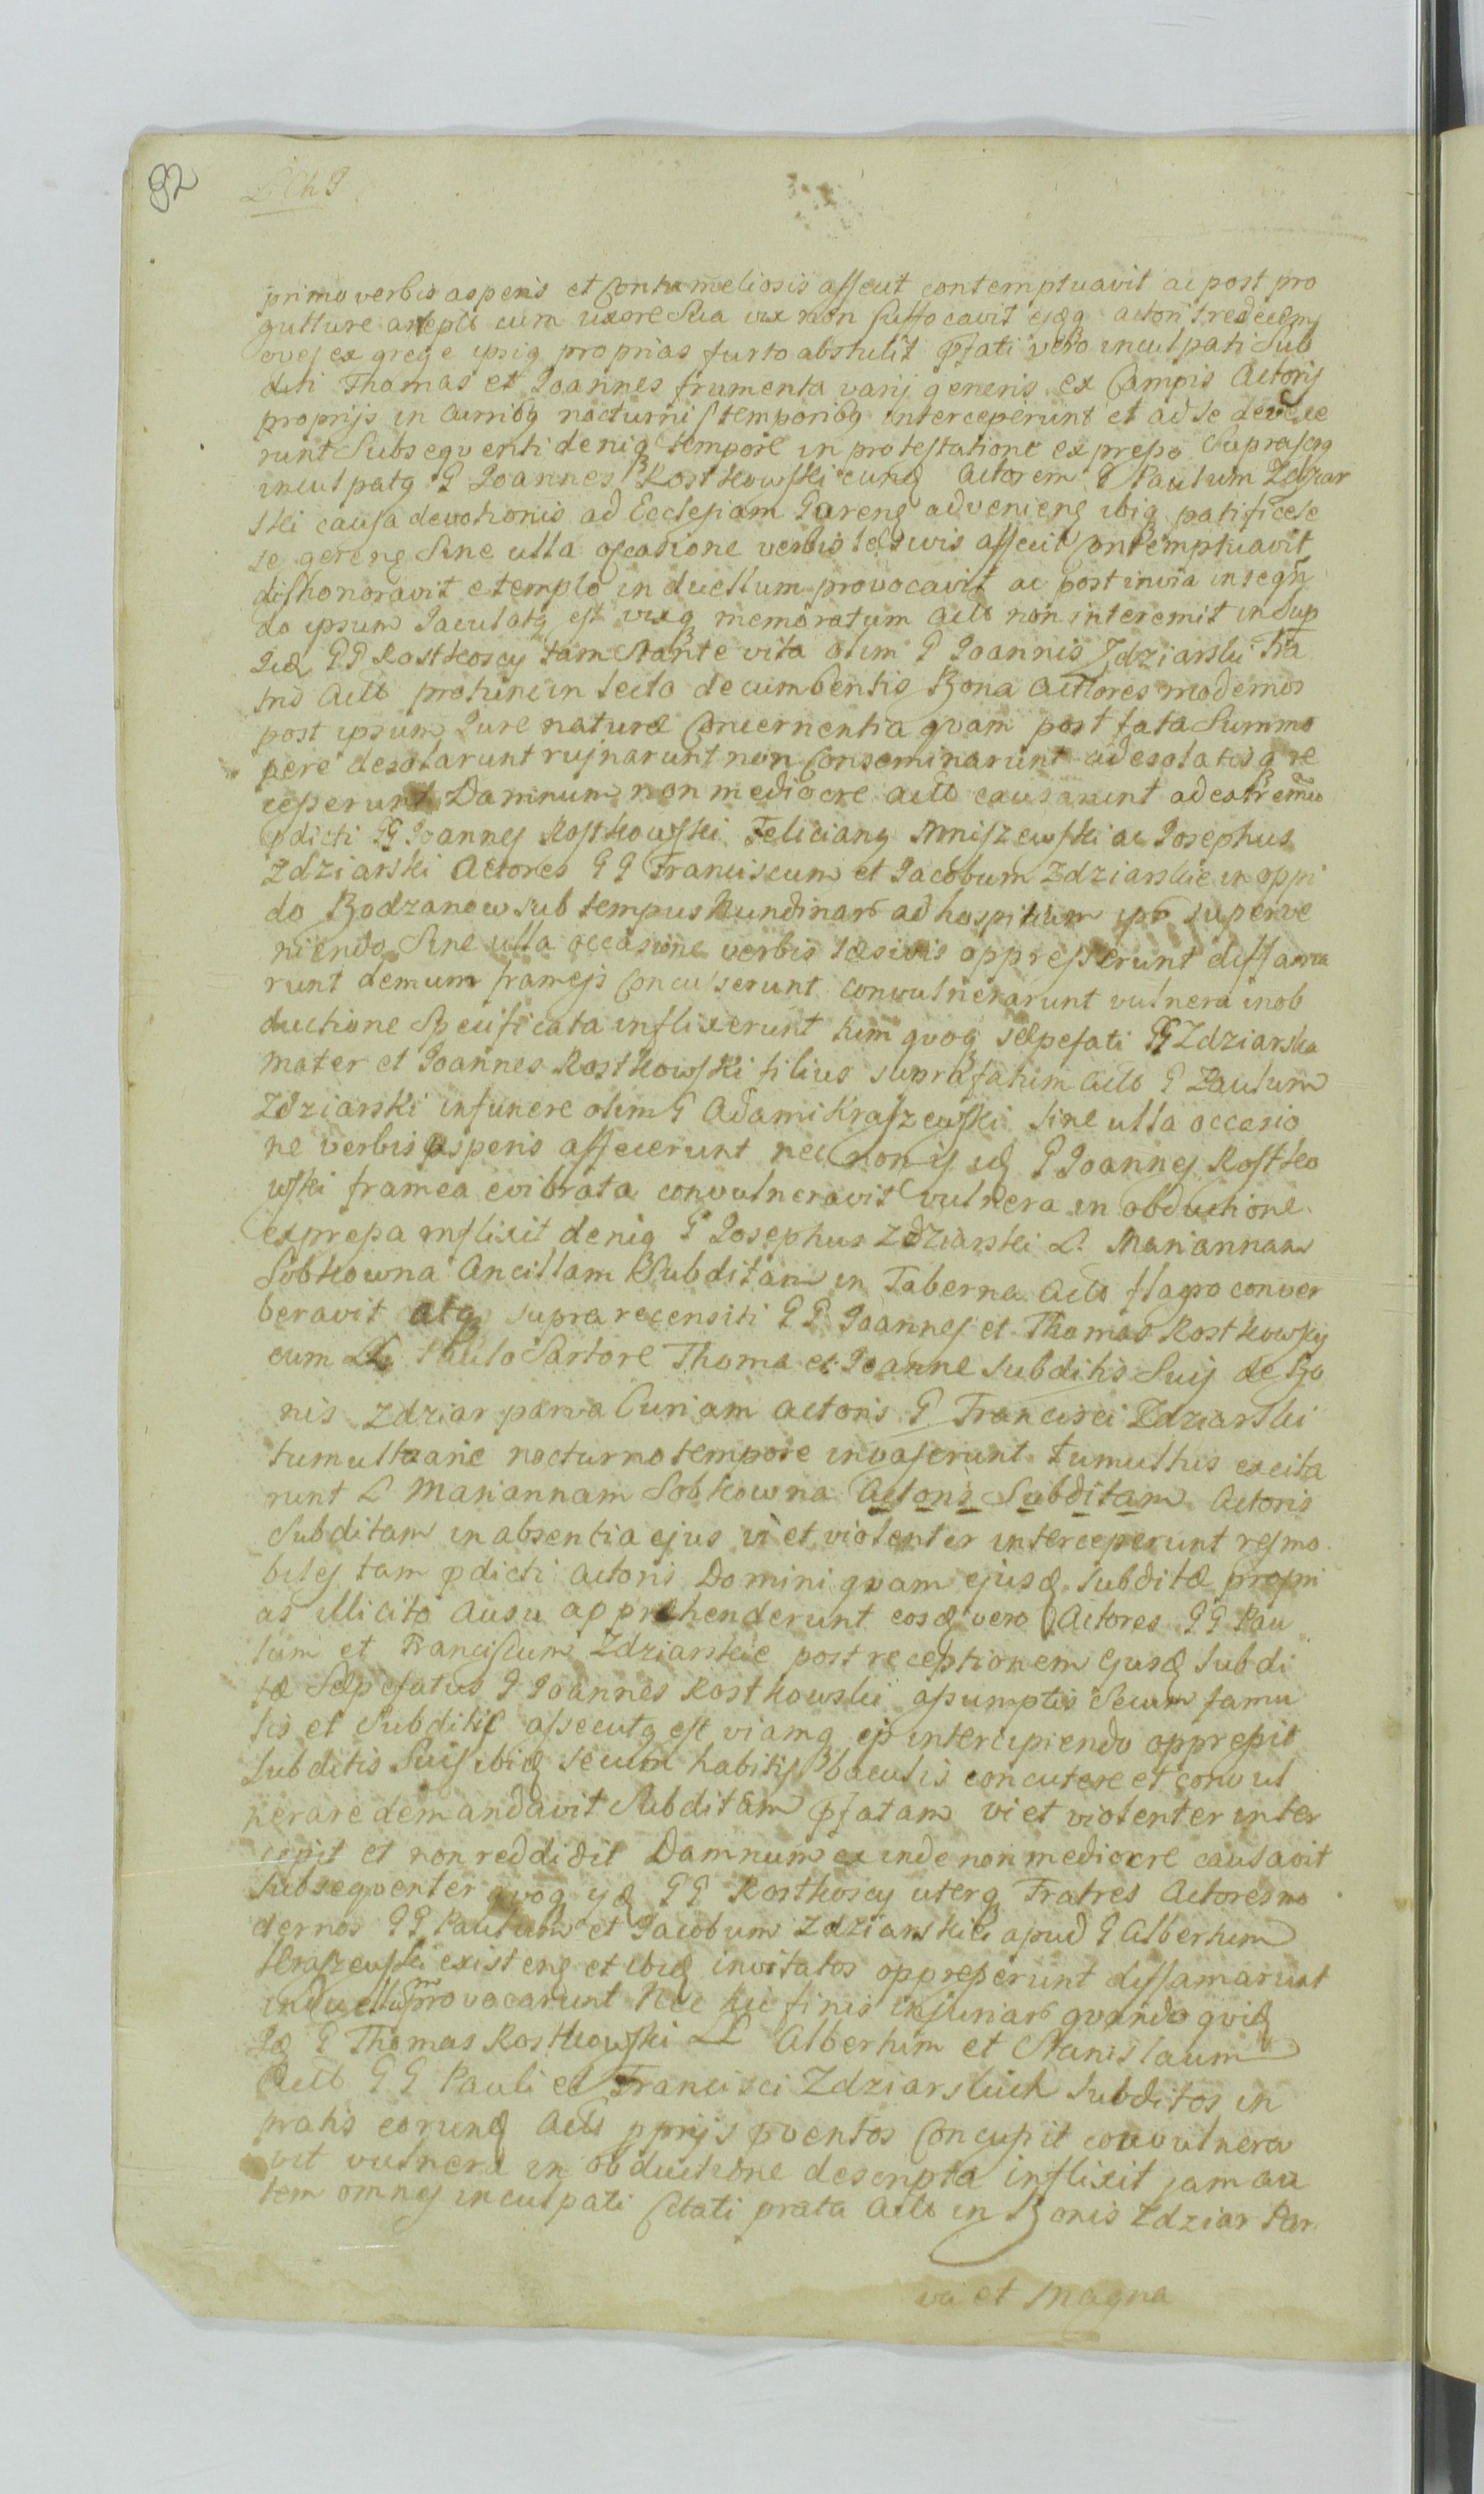 92
primo verbis asperis et Contumeliosis affecit contemptuavit ac post pro
gutture arrepto cum uxore Sua vix non Suffocavit ejqq actori tredecem
oves ex grege ipsiq proprias furto abstulit pfati vero inculpati Sub
diti Thomas et Joannes frumenta varij generis ex Campis Actoris
proprijs in Curribq nocturnis temporibq interceperunt et ad se devexe
runt Subsequenti deniq tempore in protestatione expresso Suprascrq
inculpatq G Joannes Rostkowski eunq Actorem G Paulum Zdziar
ski causa devotionis ad Ecclesiam Parenq advenienq ibiq patifice se
se gerenq Sine ulla occasione verbis lesivis affecit Contemptuavit
dishonoravit e templo in duellum provocavit ac post in via insequen
do ipsum Jaculatq est vixq memoratum Acto non interemit insup
Jidq GG Rostkoscy tam Stante vita olim G Joannis Zdziarski Fra
tris Acto protunc in lecto decumbentis Bona Acttores modernos
post ipsum Jure naturæ Concernentia quam post fata Summo
pere desolarunt rujnarunt non Conseminarunt adesolatisq re
ceperunt Damnum non mediocre Acto causarunt ad extremum
pdicti GG Joannes Rostkowski Felicianq Mniszewski ac Josephus
Zdziarski Actores GG Franciscum et Jacobum Zdziarskie in oppi
do Bodzanow sub tempus Nundinar ad hospitium ipo superve
niendo Sine ulla occasione verbis læsivis oppresserunt diffama
runt demum frameis Concusserunt convulnerarunt vulnera in ob
ductione Specificata inflixerunt tum quoq sæpefati GG Zdziarska
mater et Joannes Rostkowski filius suprafatum Acto G Paulum
Zdziarski in funere olim G Adami Kraszewski sine ulla occasio
ne verbis asperis affecerunt nec non is idq G Joannes Rostko
wski framea evibrata convulneravit vulnera in obductione
expressa inflixit deniq G Josephus Zdziarski L. Mariannam
Sobkowna Ancillam Subditam in Taberna Acto flagro conver
beravit atq supra recensiti GG Joannes et Thomas Rostkowscy
cum LL Paulo Sartore Thoma et Joanne Subditis Suis de Bo
nis Zdziar parva Curiam actoris G Francisci Zdziarski
tumultuarie nocturno tempore invaserunt tumultus excita
runt L Mariannam Sobkowna Actoris Subditam Actoris
Subditam in absentia ejus vi et violenter interceperunt res mo
biles tam pdicti Actoris Domini quam ejusdq Subditæ propri
as illicito ausu apprehenderunt eosdq vero Actores GG Pau
lum et Franciscum Zdziarskie post receptionem Ejusdq Subdi
tæ Sæpefatus G Joannes Rostkowski assumptis Secum famu
lis et Subditis assecutq est viamq ijs intercipiendo oppressit
Subditis Suis ibiq secum habitis baculis concutere et convul
nerare demandavit Subditam pfatam vi et violenter inter
cepit et non reddidit Damnum exinde non mediocre causavit
Subsequenter quoq ijdq GG Rostkoscy uterq Fratres Actores mo
dernos GG Paulum et Jacobum Zdziarskie apud G Albertum
Kraszewski existenq et ibiq invitatos oppresserunt diffamarunt
in duellum provocarunt Nec hic finis injuriar quandoquidq
Jdq G Thomas Rostkowski LL Albertum et Stanislaum
Acto GG Pauli et Francisci Zdziarskich Subditos in
pratis eorundq Acto pprijs pventos Concussit convulnera
vit vulnera in obductione descripta inflixit jam au
tem omnes inculpati Citati prata Acto in Bonis Zdziar Par
va et Magna